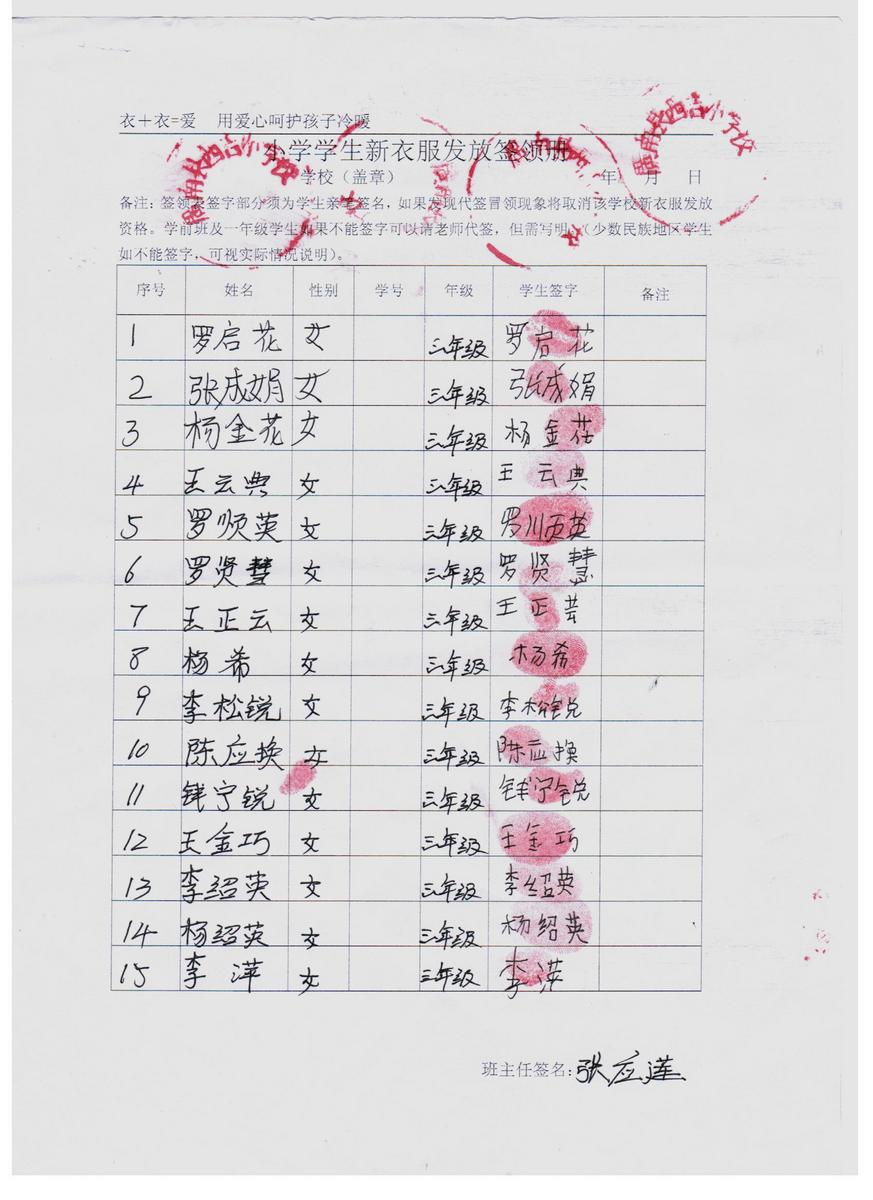 衣+衣=爱 用爱心呵护孩子冷暖
小学学生新衣服发放签领册
学校（盖章） 年 月 日
备注：签领表签字部分须为学生亲笔签名，如果发现代签冒领现象将取消该学校新衣服发放
资格。学前班及一年级学生如果不能签字可以请老师代签，但需写明。（少数民族地区学生
如不能签字，可视实际情况说明）。
序号 姓名 性别 学号 年级 学生签字 备注
1 罗启花 女 三年级 罗启花
2 张成娟 女 三年级 张成娟
3 杨金花 女 三年级 杨金花
4 王云典 女 三年级 王云典
5 罗顺英 女 三年级 罗顺英
6 罗贤慧 女 三年级 罗贤慧
7 王正云 女 三年级 王正芸
8 杨希 女 三年级 杨希
9 李松锐 女 三年级 李松锐
10 陈应换 女 三年级 陈应换
11 宁锐 女 三年级 宁锐
12 王金巧 女 三年级 王金巧
13 李绍英 女 三年级 李绍英
14 杨绍英 女 三年级 杨绍英
15 李萍 女 三年级 李萍
班主任签名：张应莲